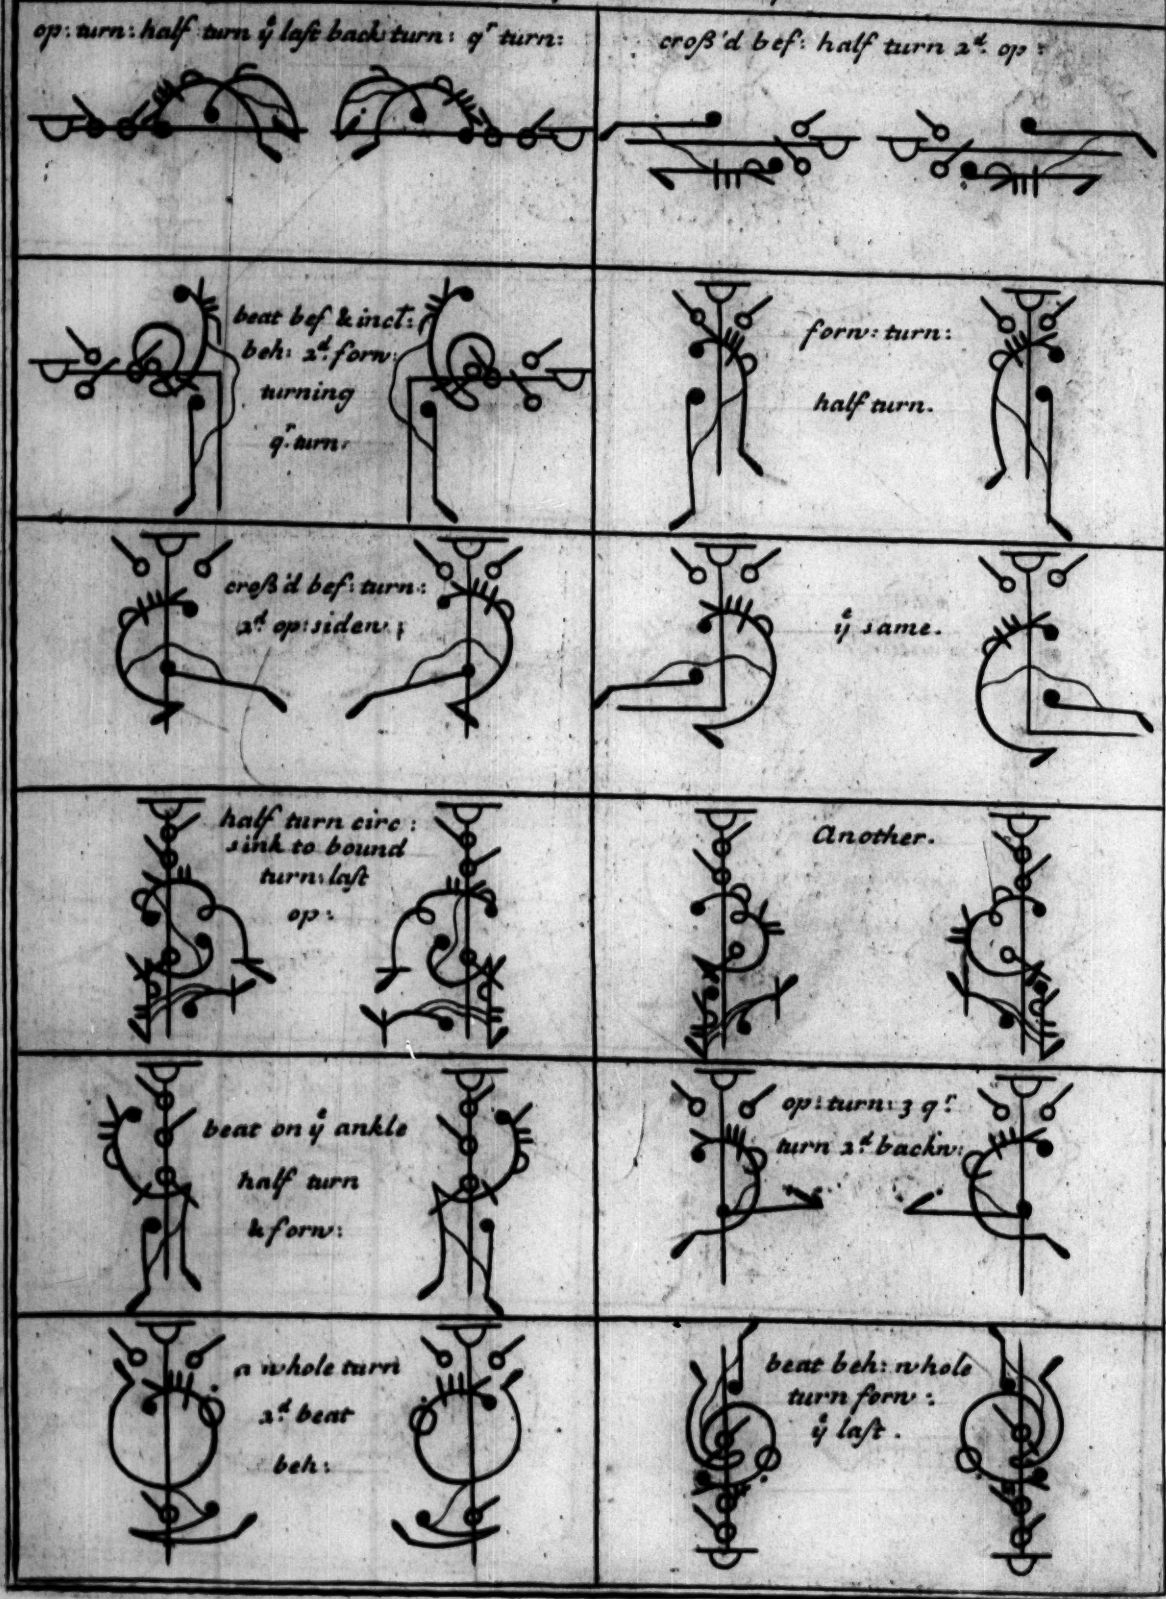 op: turn: half turn yͤ laſt back turn: qʳ turn:
croß'd bef: half turn 2ᵈ. op:
beat bef & incl:
beh: 2ᵈ. forw:
turning
qʳ. turn:
forw: turn:
half turn.
croß'd bef: turn:
2ᵈ. op: sidew:
yͤ same.
half turn circ:
sink to bound
turn: laſt
op:
Another.
beat on yͤ ankle
half turn
& forw:
op: turn: 3 qʳ.
turn 2ᵈ. backw:
a whole turn
2ᵈ. beat
beh:
beat beh: whole
turn forw:
yͤ laſt.